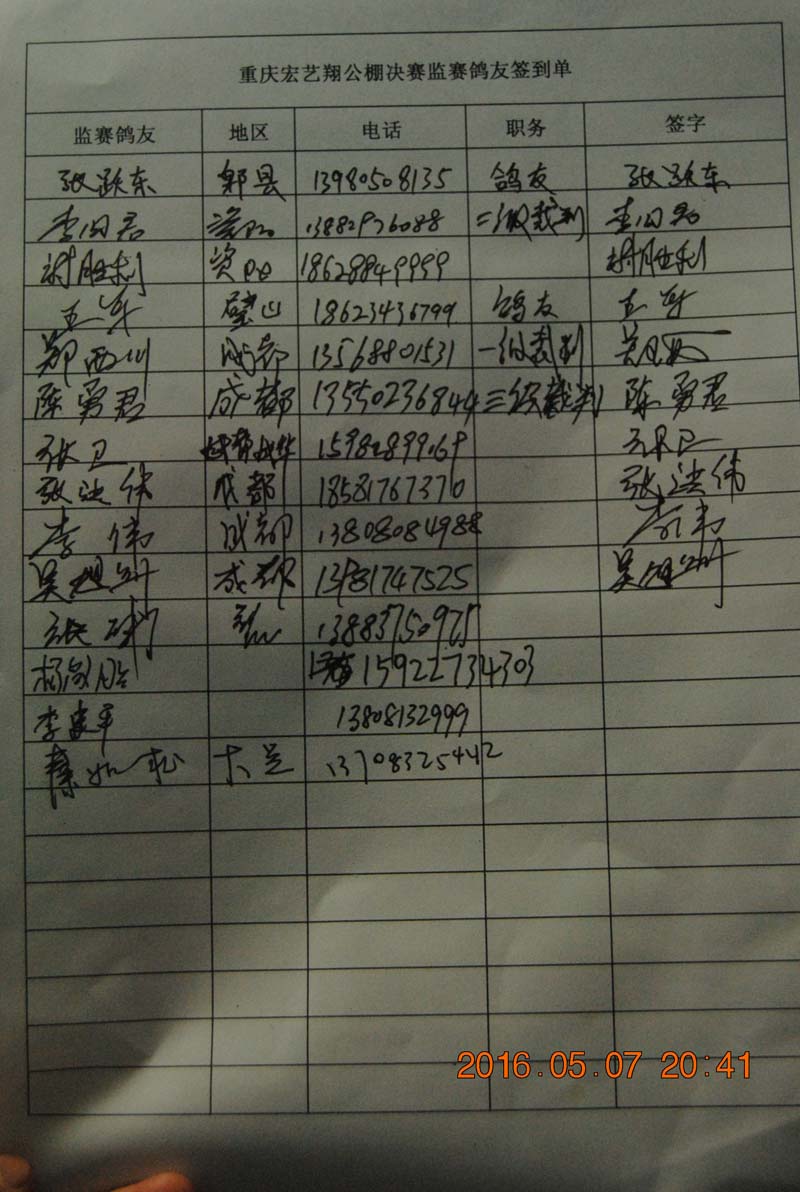 重庆宏艺翔公棚决赛监赛鸽友签到单
监赛鸽友 地区 电话 职务 签字
张跃东 郫县 13980508135 鸽友 张跃东
13882976088 二级裁判
胜利 资阳 18628849999 胜利
王军 璧山 18623436799 鸽友 王军
郑西川 成都 13568801531 一级裁判
陈勇君 成都 13550236844 三级裁判 陈勇君
张卫 15982899069 张卫
张洪伟 成都 18581767370 张洪伟
李伟 成都 13808084988 李伟
吴旭 成都 13981747525 吴旭
张 13883750975
杨 15922734303
李建军 13808132999
秦如松 大足 13708325442
2016.05.07 20:41